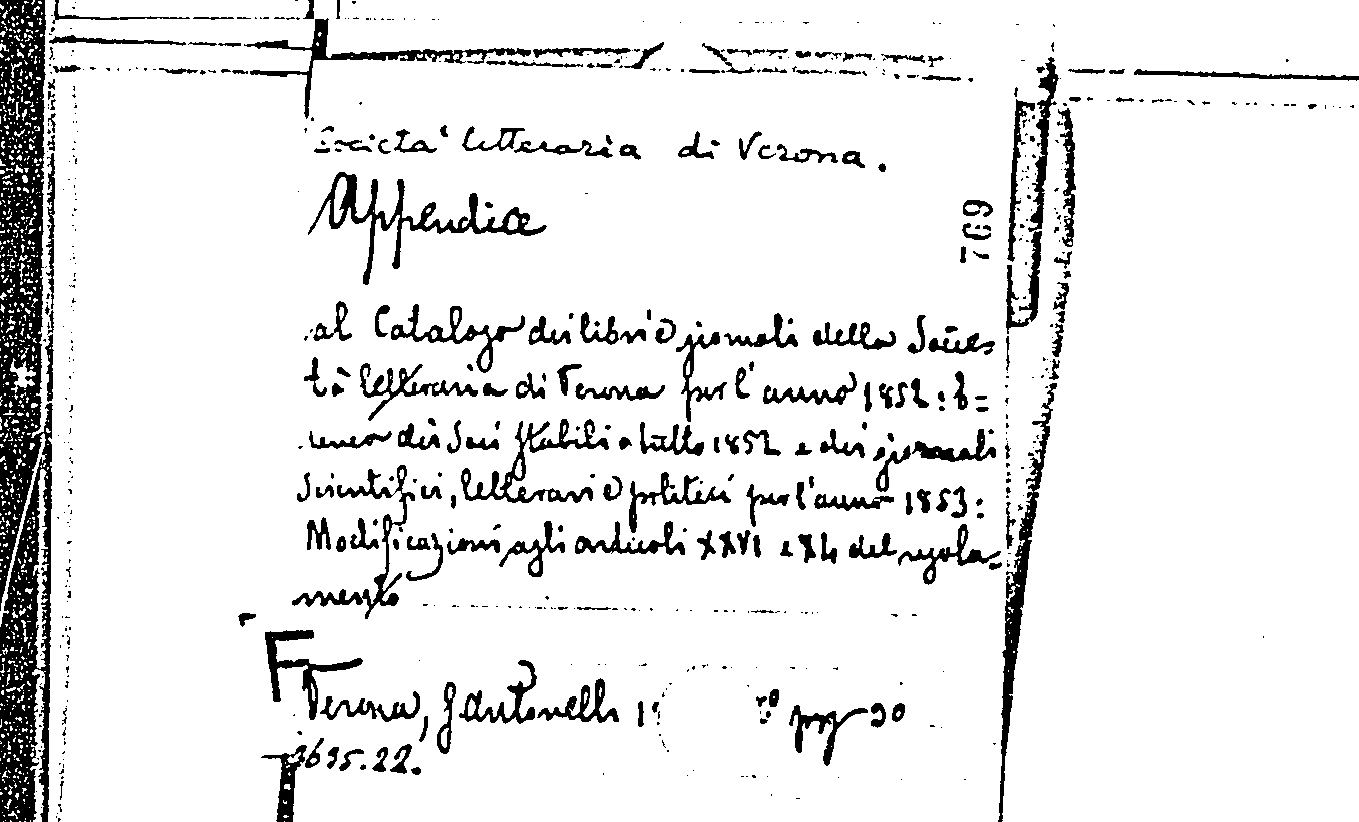 Società letteraria di Verona.
Appendice
769
al Catalogo dei libri e giornali della Socie=
tà letteraria di Verona per l'anno 1852: E=
lenco dei Soci stabili a tutto 1852 e dei giornali
scientifici, letterari e politici per l'anno 1853:
Modificazioni agli articoli XXVI e XL del regola=
mento
Verona, G. Antonelli pag 20
3695.22.